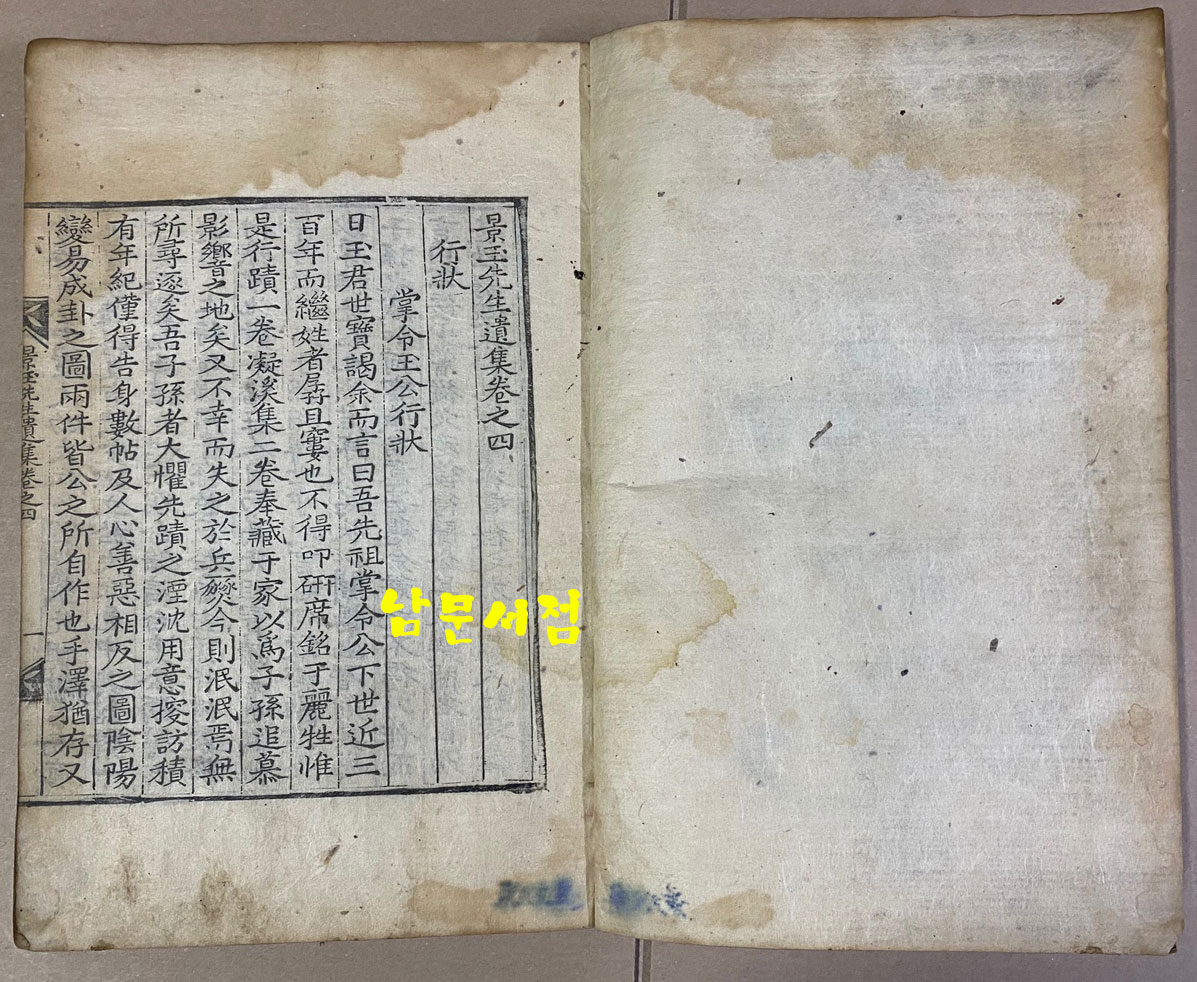 景玉先生遺集卷之四
行狀
掌令王公行狀
日王君世寶謁余而言曰吾先祖掌令公下世近三
百年而繼姓者孱且窶也不得叩硏席銘于麗牲惟
是行蹟一卷凝溪集二卷奉藏于家以爲子孫追慕
影響之地矣又不幸而失之於兵燹今則泯泯焉無
所尋逐矣吾子孫者大懼先蹟之湮沈用意搜訪積
有年紀僅得告身數帖及人心善惡相反之圖陰陽
變易成卦之圖兩件皆公之所自作也手澤猶存又
景玉先生遺集卷之四
一
남문서점